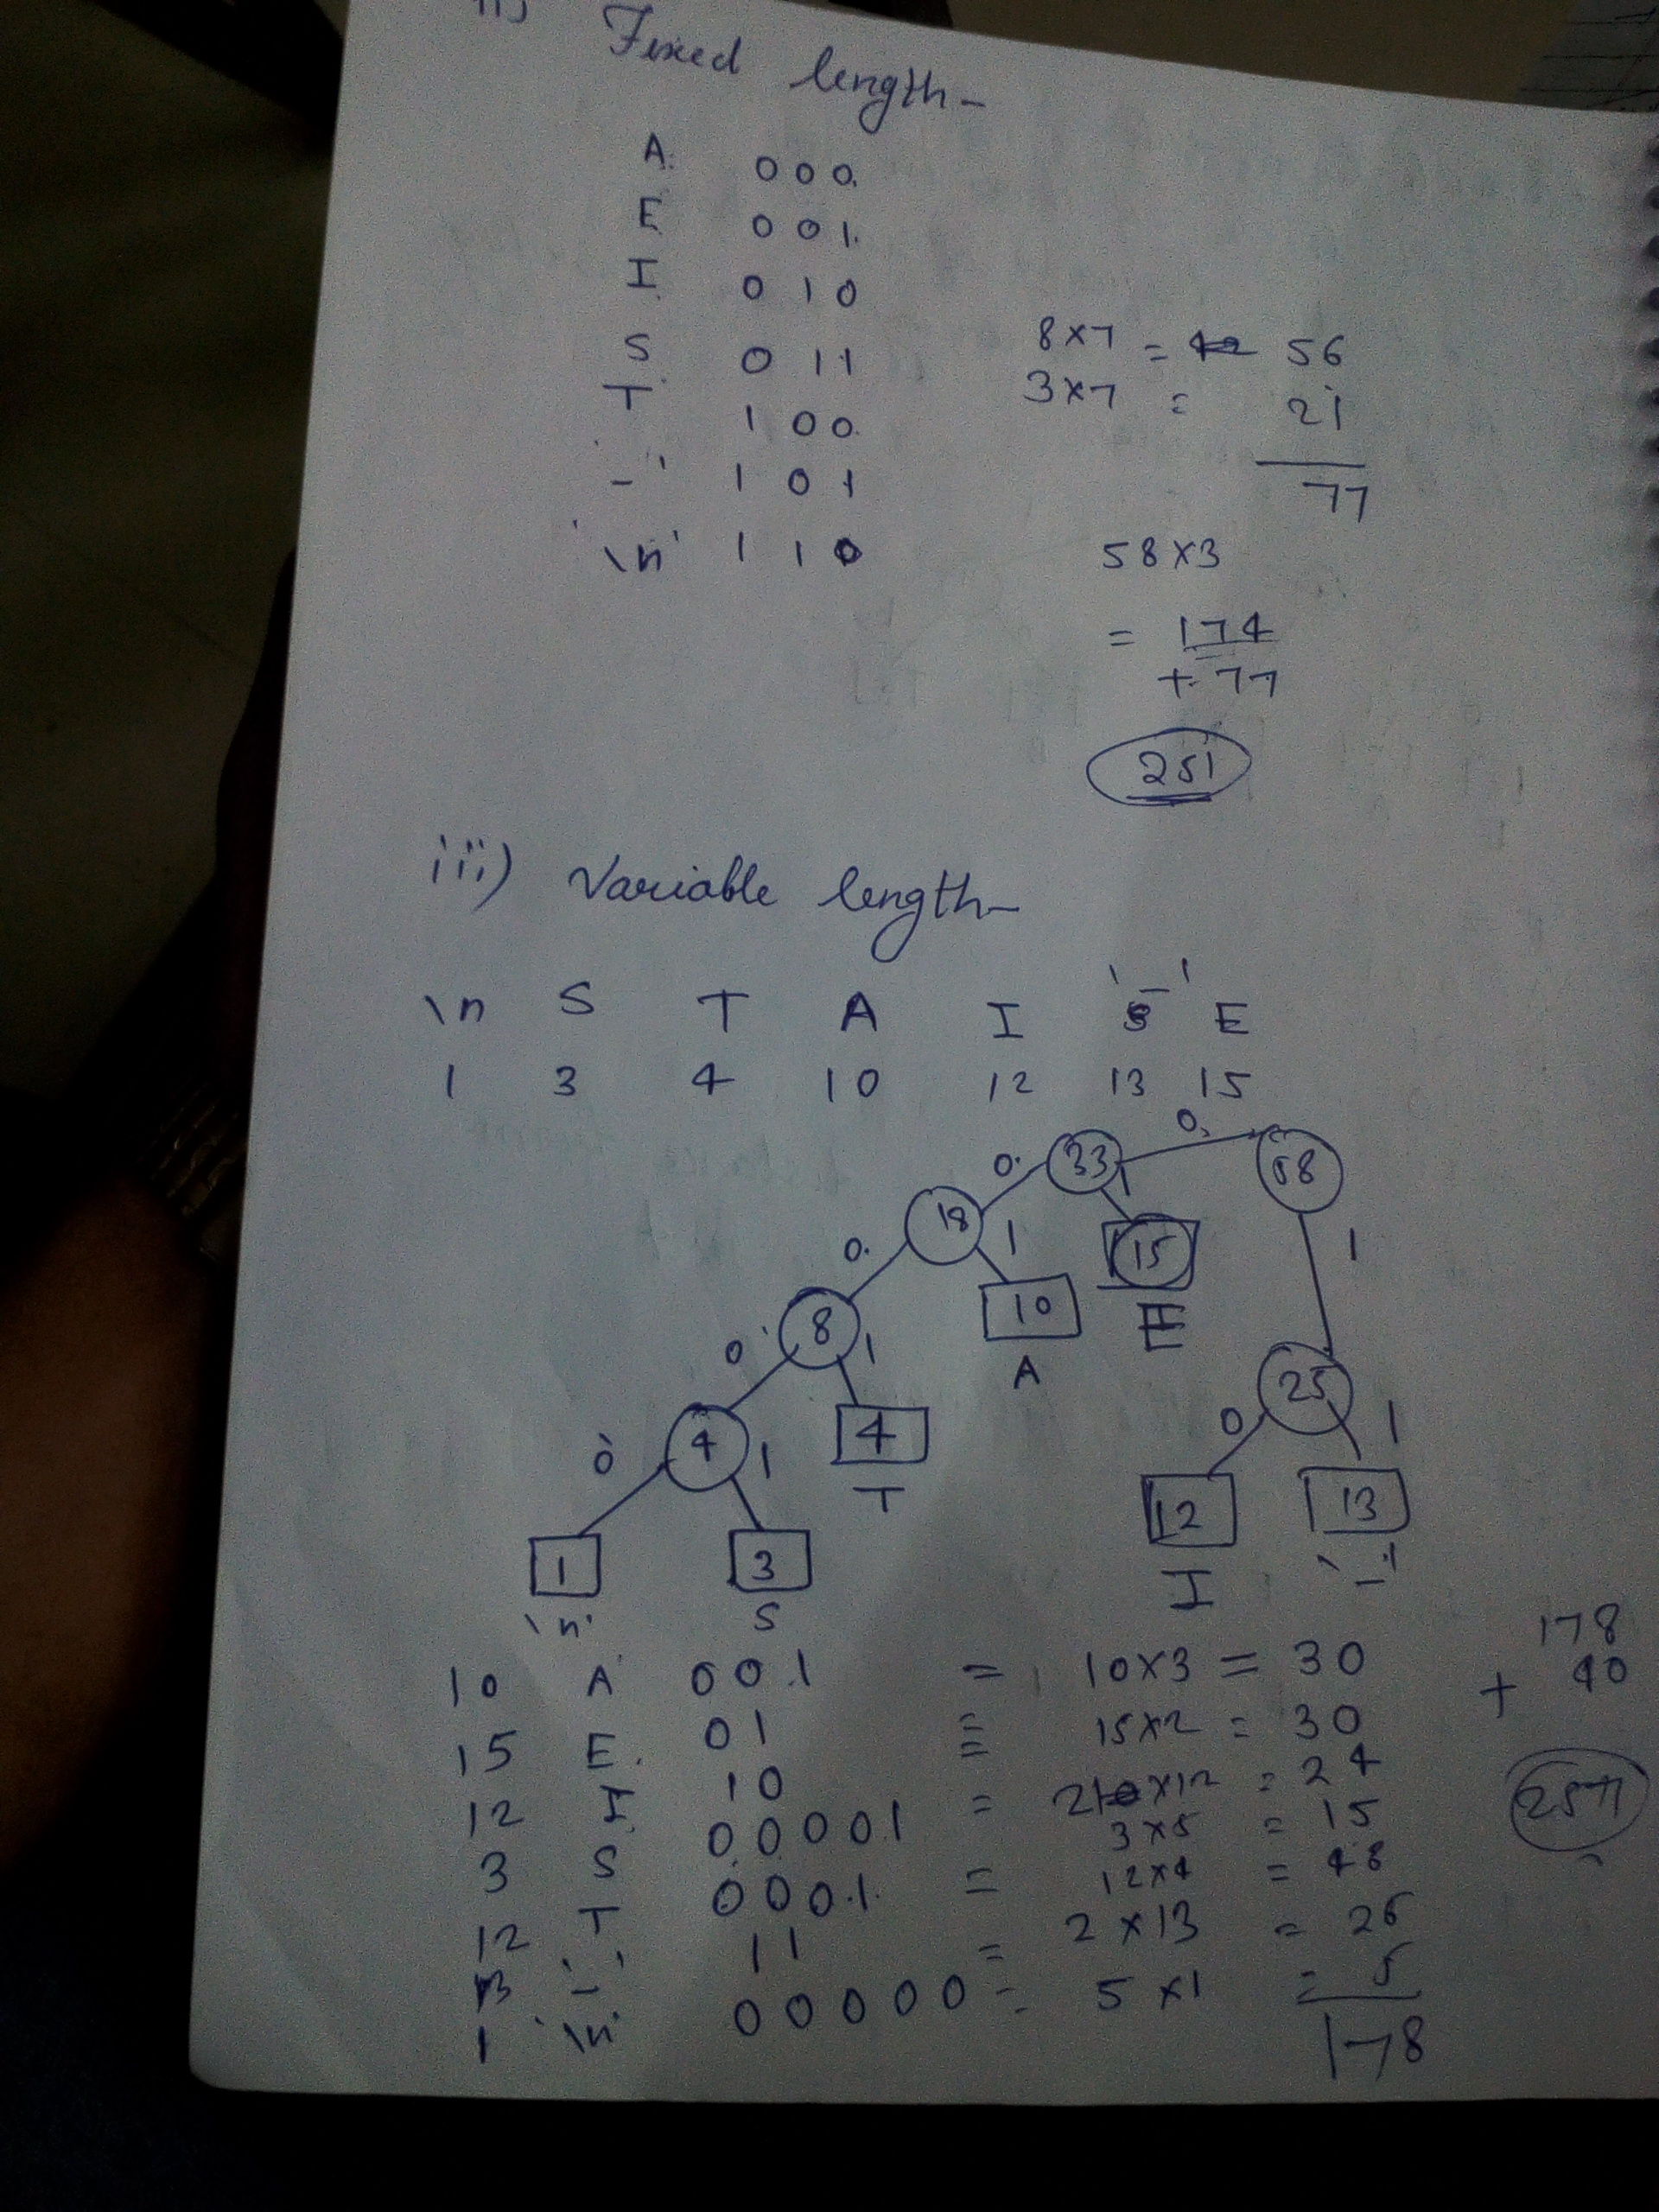 ii) Fixed length-
A 000
E 001
I 010
S 011
T 100
'-' 101
'\n' 110
8×7 = 56
3×7 = 21
77
58×3
= 174
+ 77
251
iii) Variable length-
\n S T A I '-' E
1 3 4 10 12 13 15
0 33 0 58
0 18 1 1 15 1
0 8 1 10 E
A
0 4 1 4 25
T 0 1
0 1
1 3 12 13
'\n' S I '-'
10 A 001 = 10×3 = 30
15 E 01 = 15×2 = 30
12 I 10 = 2×12 = 24
3 S 00001 3×5 = 15
12 T 0001 = 12×4 = 48
13 '-' 11 = 2×13 = 26
1 '\n' 00000 = 5×1 = 5
178
178
+ 40